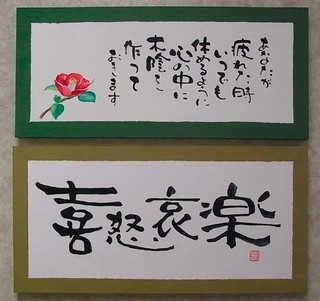 あなたが
疲れた時
いつでも
休めるように
心の中に
木陰を
作って
おきます
喜怒哀楽